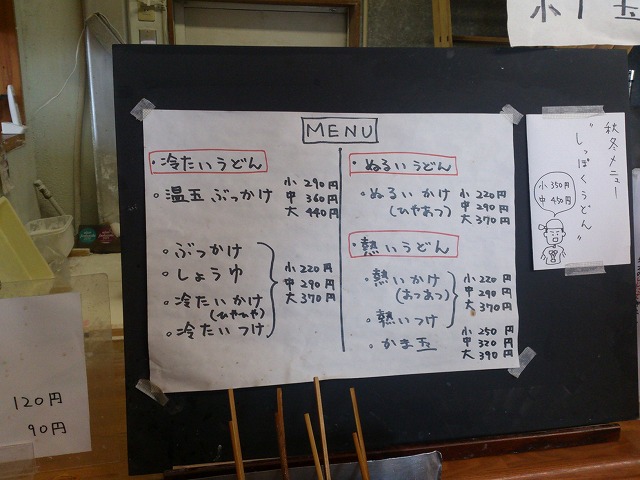 MENU
・冷たいうどん
・温玉ぶっかけ
小 290円
中 360円
大 440円
・ぶっかけ
・しょうゆ
・冷たいかけ
(ひやひや)
・冷たいつけ
小 220円
中 290円
大 370円
・ぬるいうどん
・ぬるいかけ
(ひやあつ)
小 220円
中 290円
大 370円
・熱いうどん
・熱いかけ
(あつあつ)
・熱いつけ
小 220円
中 290円
大 370円
・かま玉
小 250円
中 320円
大 390円
秋冬メニュー
"しっぽくうどん"
小 350円
中 450円
120円
90円